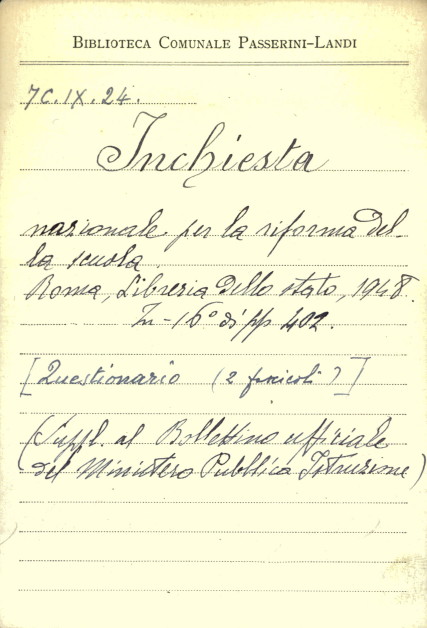 BIBLIOTECA COMUNALE PASSERINI-LANDI
7C.IX.24.
Inchiesta
nazionale per la riforma del-
la scuola.
Roma, Libreria dello stato, 1948.
In-16° di pp 402.
[Questionario (2 fascicoli)]
(Suppl. al Bollettino ufficiale
del Ministero Pubblica Istruzione)